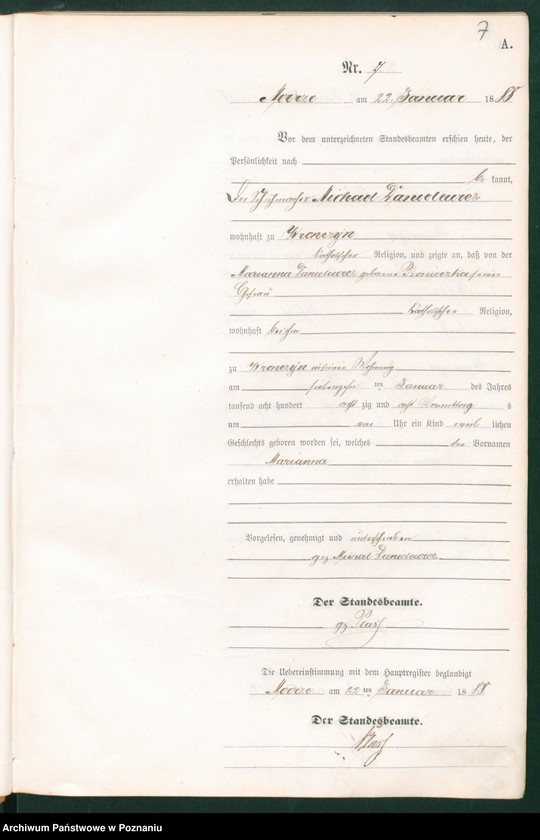 7
A.
Nr. 7
am 22. Januar 1888
Vor dem unterzeichneten Standesbeamten erschien heute, der
Persönlichkeit nach
be kannt,
Der Schuhmacher Michael Danielewicz
wohnhaft zu Wronczyn
katholischer Religion, und zeigte an, daß von der
Marianna Danielewicz geborene seiner
Ehefrau
katholischer Religion,
wohnhaft bei ihm
zu Wronczyn in seiner Wohnung
am siebenzehn ten Januar des Jahres
tausend acht hundert acht zig und acht Vormittag s
um Uhr ein Kind weib lichen
Geschlechts geboren worden sei, welches den Vornamen
Marianna
erhalten habe
Vorgelesen, genehmigt und unterschrieben
gez Michael Danielewicz
Der Standesbeamte.
gez
Die Uebereinstimmung mit dem Hauptregister beglaubigt
am 22 ten Januar 1888.
Der Standesbeamte.
Archiwum Państwowe w Poznaniu